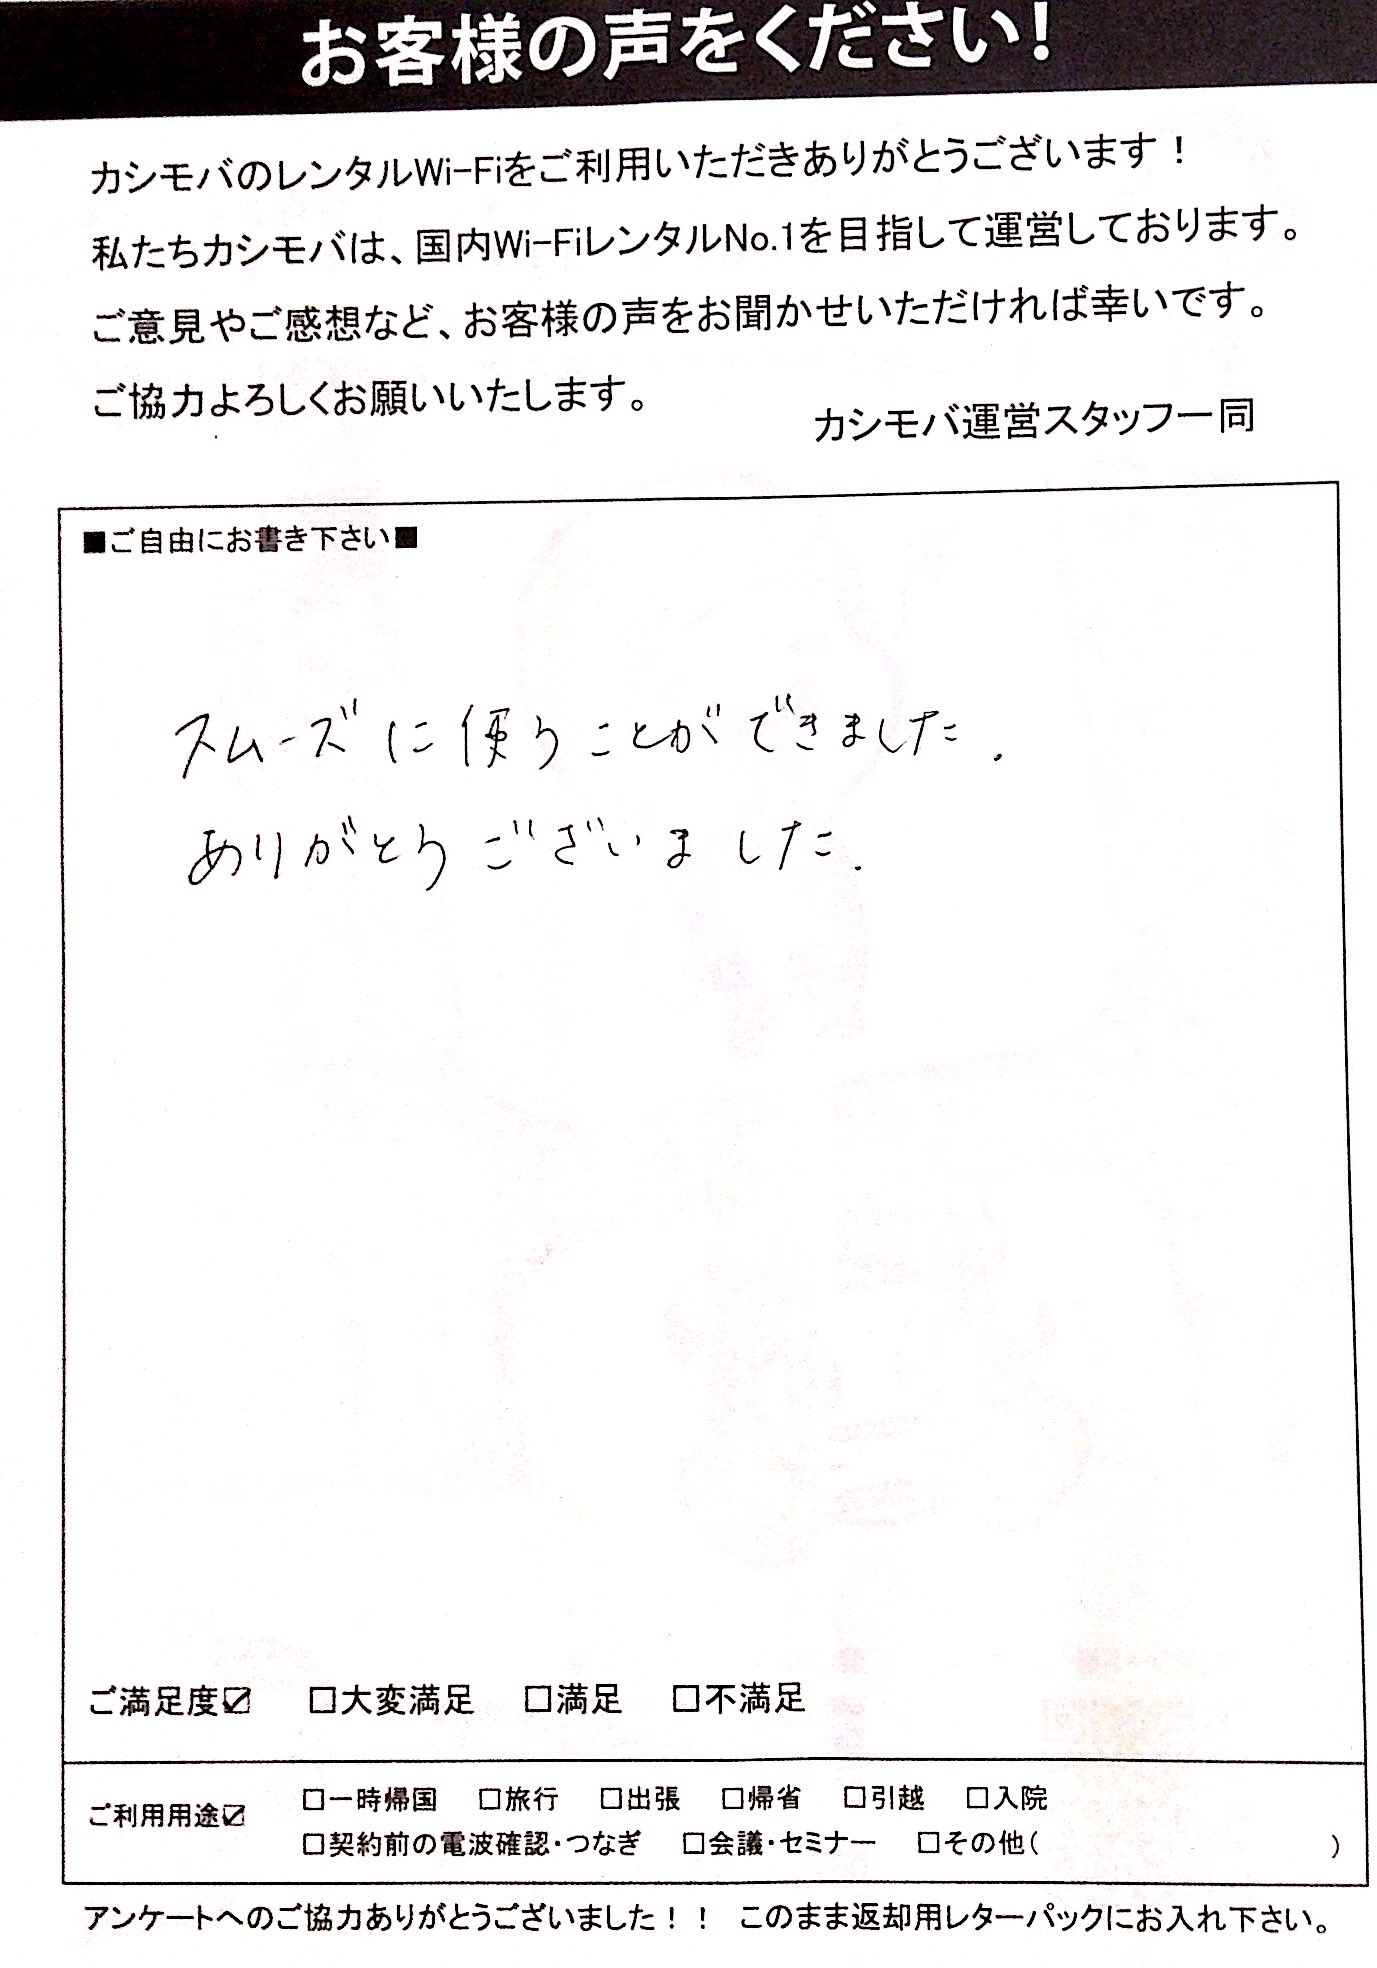 お客様の声をください!
カシモバのレンタルWi-Fiをご利用いただきありがとうございます！
私たちカシモバは、国内Wi-FiレンタルNo.1を目指して運営しております。
ご意見やご感想など、お客様の声をお聞かせいただければ幸いです。
ご協力よろしくお願いいたします。
カシモバ運営スタッフ一同
■ご自由にお書き下さい■
スムーズに使うことができました.
ありがとうございました.
ご満足度☑ □大変満足 □満足 □不満足
ご利用用途☑
□一時帰国 □旅行 □出張 □帰省 □引越 □入院
□契約前の電波確認・つなぎ □会議・セミナー □その他( )
アンケートへのご協力ありがとうございました！！ このまま返却用レターパックにお入れ下さい。